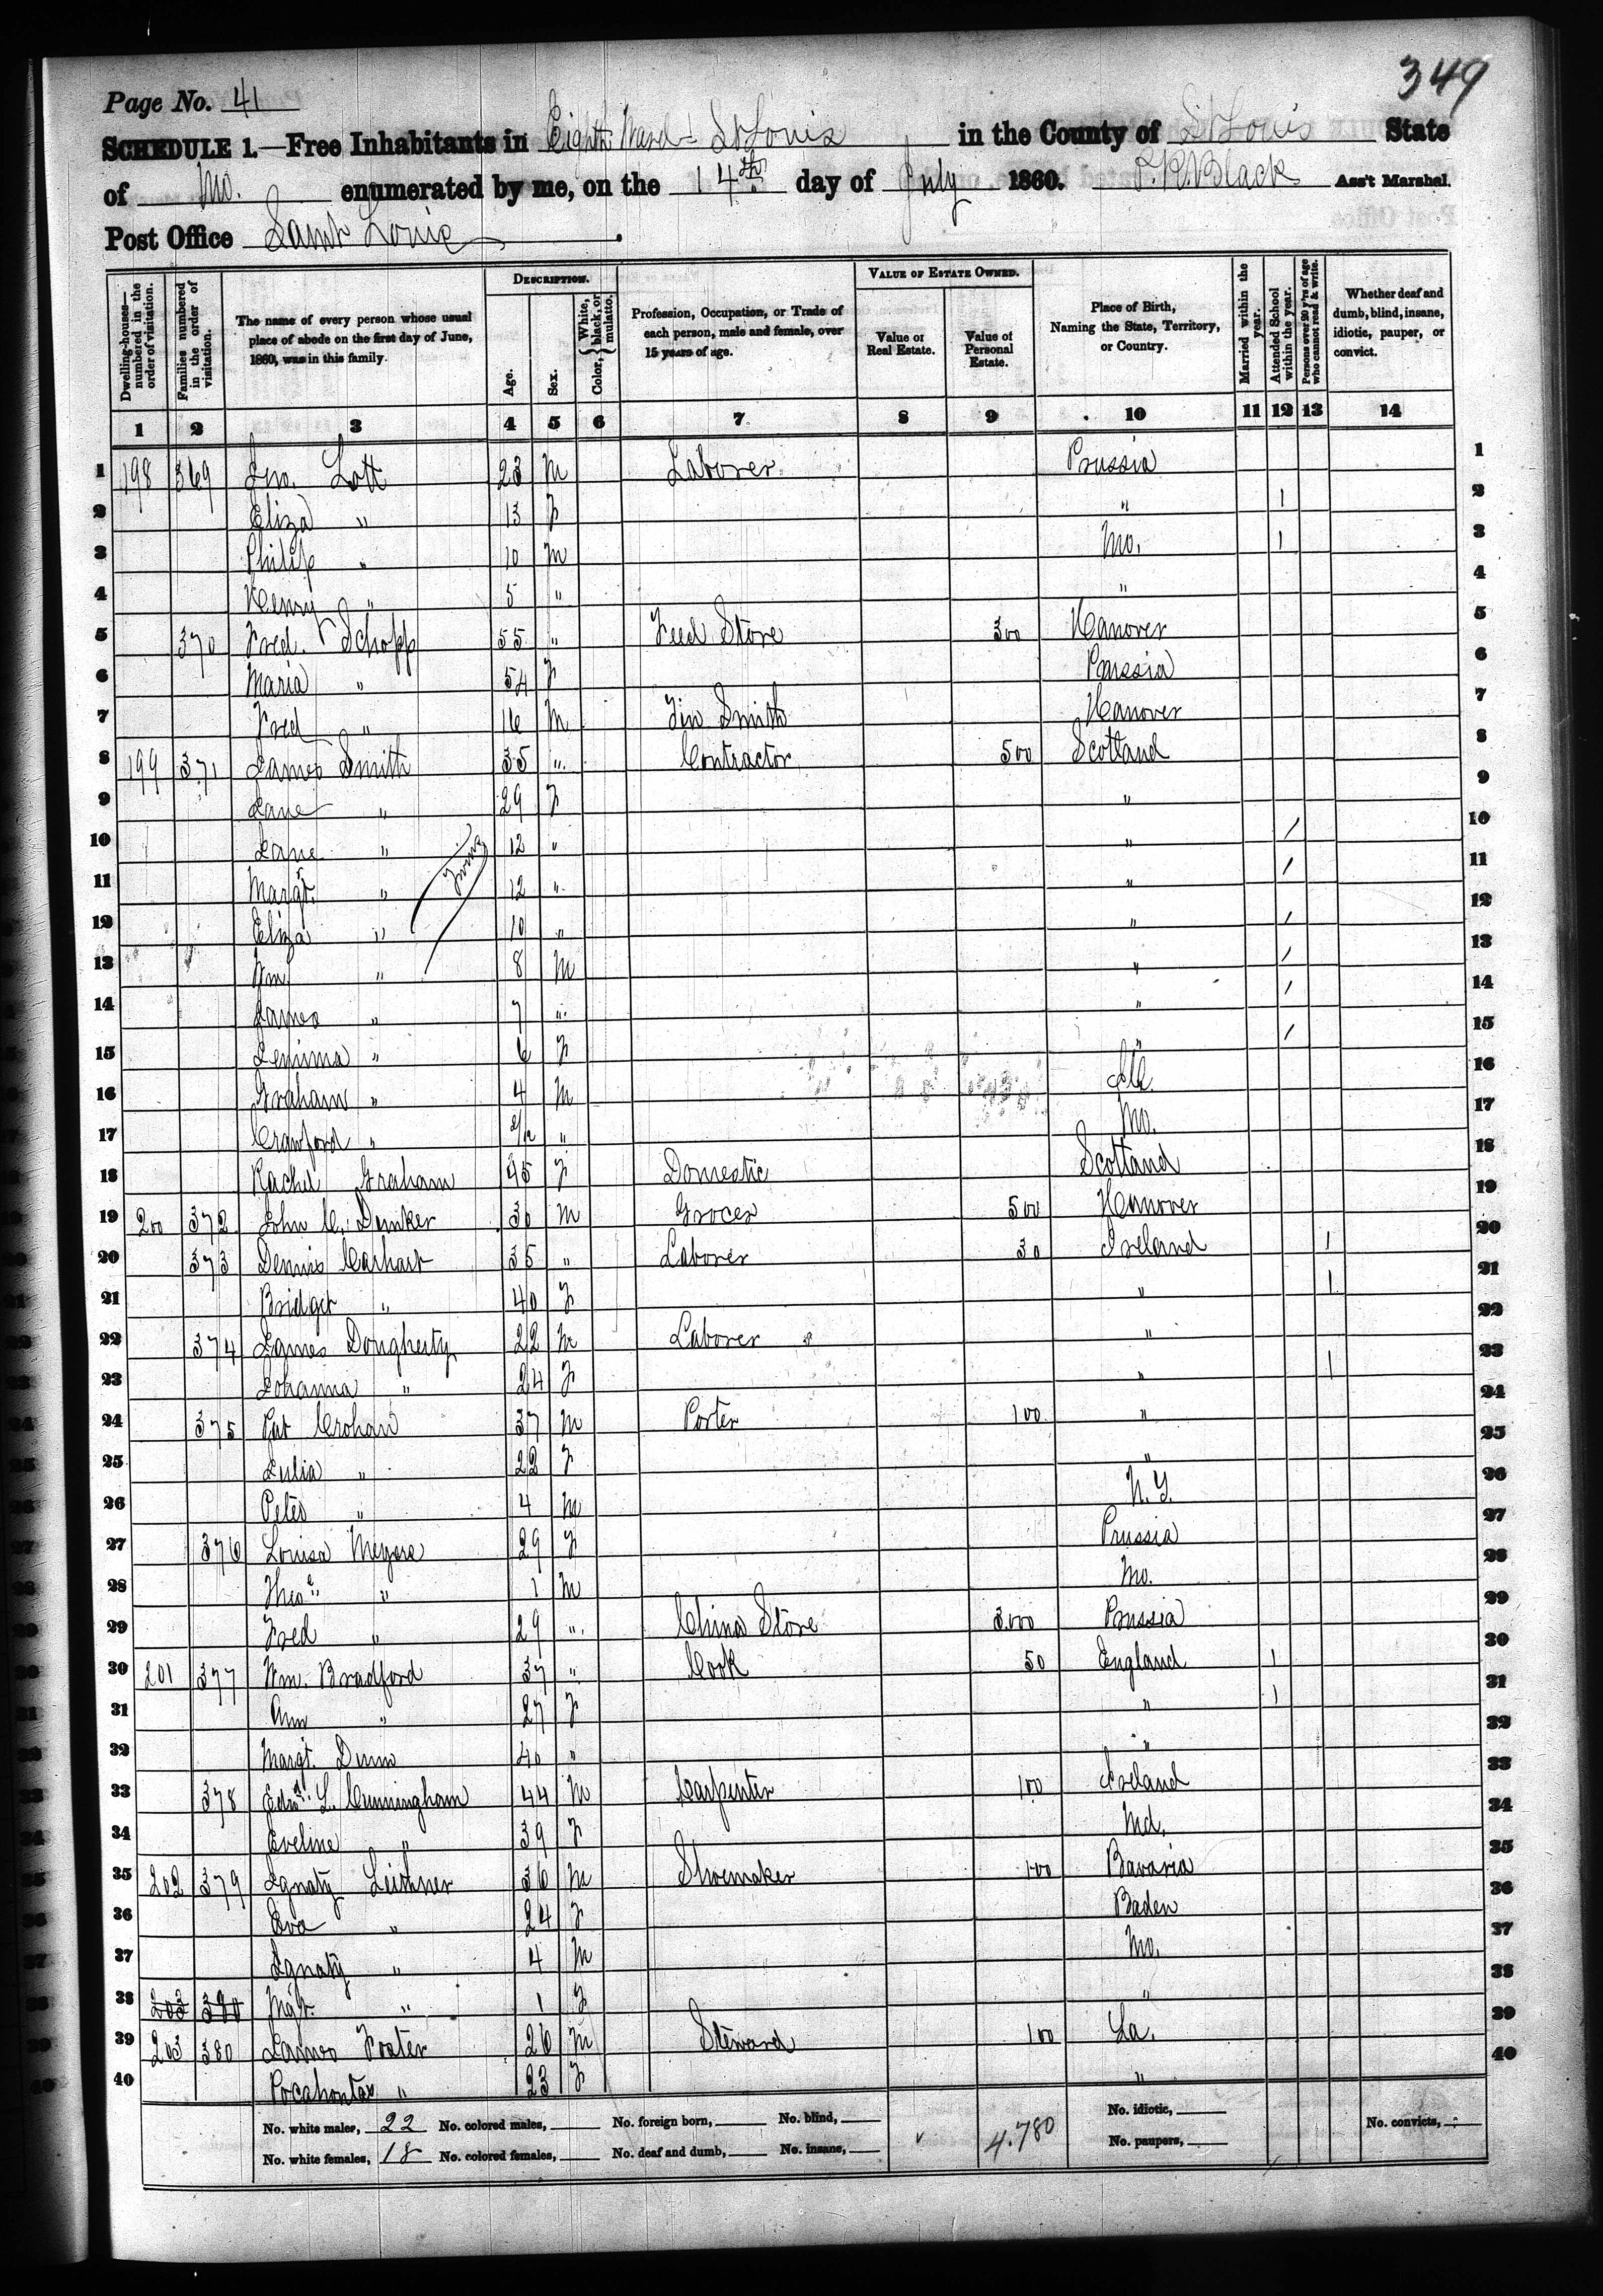 349
Page No. 41
SCHEDULE 1.—Free Inhabitants in Eighth Ward St Louis in the County of St Louis State
of Mo. enumerated by me, on the 14th day of July 1860. Black Ass't Marshal.
Post Office Saint Louis.
Dwelling-houses—numbered in the order of visitation. Families numbered in the order of visitation. The name of every person whose usual place of abode on the first day of June, 1860, was in this family. DESCRIPTION. Age. Sex. Color, { White, black, or mulatto. Profession, Occupation, or Trade of each person, male and female, over 15 years of age. VALUE OF ESTATE OWNED. Value of Real Estate. Value of Personal Estate. Place of Birth, Naming the State, Territory, or Country. Married within the year. Attended School within the year. Persons over 20 y'rs of age who cannot read & write. Whether deaf and dumb, blind, insane, idiotic, pauper, or convict.
1 2 3 4 5 6 7 8 9 10 11 12 13 14
1 198 369 Jno. Lott 23 M Laborer Prussia 1
2 Eliza " 13 F " 1 2
3 Philip " 10 M Mo. 1 3
4 Henry " 5 " " 4
5 370 Fred. Schopp 55 " Feed Store 300 Hanover 5
6 Maria " 54 F Prussia 6
7 Fred " 16 M Tin Smith Hanover 7
8 199 371 James Smith 35 " Contractor 500 Scotland 8
9 Jane " 29 F " 9
10 Jane " 12 " " / 10
11 Margt. " Twins 12 " " / 11
12 Eliza " 10 " " / 12
13 Wm. " 8 M " / 13
14 James " 7 " " / 14
15 Jemima " 6 F " / 15
16 Graham " 4 M Ill. 16
17 Crawford " 2/12 " Mo. 17
18 Rachel Graham 45 F Domestic Scotland 18
19 200 372 John C. Dunker 30 M Grocer 500 Hanover 19
20 373 Dennis Carhart 35 " Laborer 30 Ireland 1 20
21 Bridget " 40 F " 1 21
22 374 James Dougherty 22 M Laborer " 22
23 Johanna " 24 F " 1 23
24 375 Pat Crohan 37 M Porter 100 " 24
25 Julia " 22 F " 25
26 Peter " 4 M N.Y. 26
27 376 Louisa Meyers 29 F Prussia 27
28 Theo " 1 M Mo. 28
29 Fred " 29 " China Store 3.000 Prussia 29
30 201 377 Wm. Bradford 37 " Cook 50 England 1 30
31 Ann " 27 F " 1 31
32 Margt. Dunn 40 " " 32
33 378 Edwd. L. Cunningham 44 M Carpenter 100 Ireland 33
34 Eveline " 39 F Md. 34
35 202 379 Ignatz Leithner 36 M Shoemaker 100 Bavaria 35
36 Eva " 24 F Baden 36
37 Ignatz " 4 M Mo. 37
38 203 380 Mgt. " 1 F " 38
39 203 380 James Foster 26 M Steward 100 La. 39
40 Pocahontas " 23 F " 40
No. white males, 22 No. colored males, No. foreign born, No. blind, 4.780 No. idiotic, No. convicts,
No. white females, 18 No. colored females, No. deaf and dumb, No. insane, No. paupers,